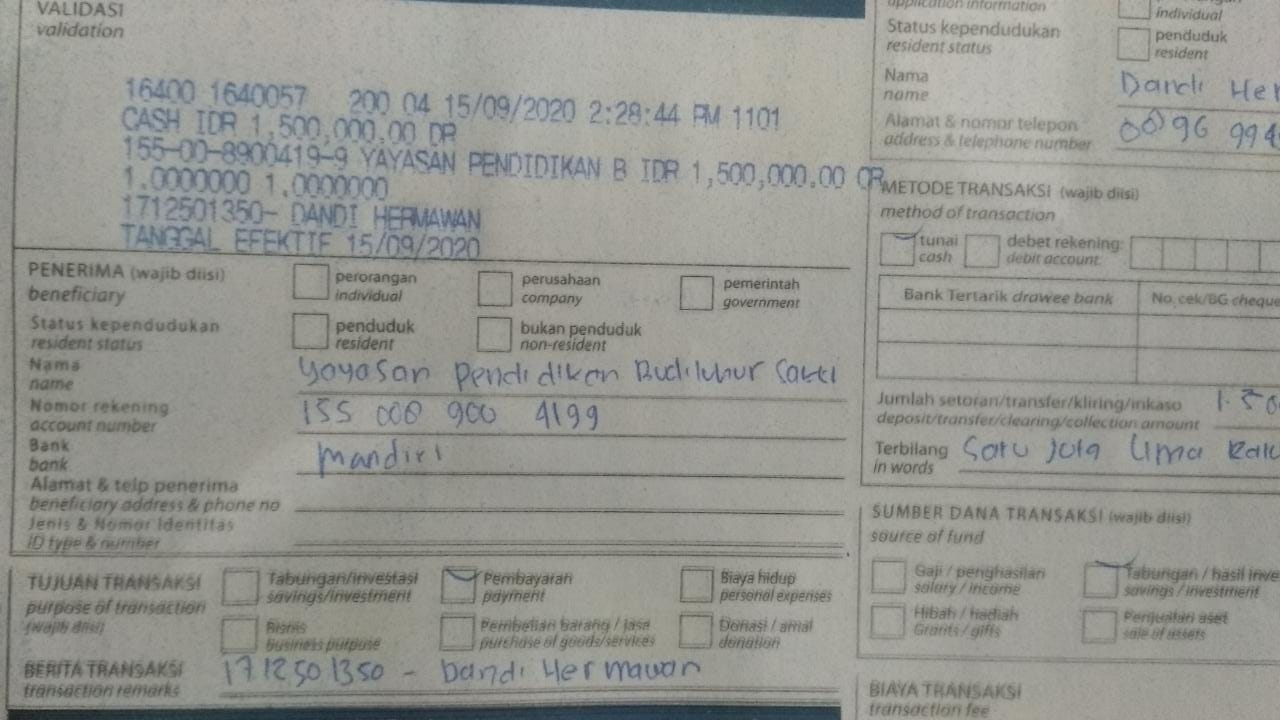 VALIDASI
validation
16400 1640057 200 04 15/09/2020 2:28:44 PM 1101
CASH IDR 1,500,000.00 DR
155-00-8900419-9 YAYASAN PENDIDIKAN B IDR 1,500,000.00 CR
1.0000000 1.0000000
1712501350- DANDI HERMAWAN
TANGGAL EFEKTIF 15/09/2020
PENERIMA (wajib diisi)
beneficiary
perorangan
individual
perusahaan
company
pemerintah
government
Status kependudukan
resident status
penduduk
resident
bukan penduduk
non-resident
Nama
name
Yayasan Pendidikan Budiluhur Sakti
Nomor rekening
account number
155 008 900 4199
Bank
bank
Mandiri
Alamat & telp penerima
beneficiary address & phone no
Jenis & Nomor Identitas
ID type & number
TUJUAN TRANSAKSI
purpose of transaction
(wajib diisi)
Tabungan/investasi
savings/investment
Pembayaran
payment
Biaya hidup
personal expenses
Bisnis
business purpose
Pembelian barang / jasa
purchase of goods/services
Donasi / amal
donation
BERITA TRANSAKSI
transaction remarks
1712501350 - Dandi Hermawan
application information
individual
Status kependudukan
resident status
penduduk
resident
Nama
name
Dandi Her
Alamat & nomor telepon
address & telephone number
0896 994
METODE TRANSAKSI (wajib diisi)
method of transaction
tunai
cash
debet rekening:
debit account:
Bank Tertarik drawee bank
No. cek/BG cheque
Jumlah setoran/transfer/kliring/inkaso
deposit/transfer/clearing/collection amount
1.50
Terbilang
in words
Satu Juta Lima Ratu
SUMBER DANA TRANSAKSI (wajib diisi)
source of fund
Gaji / penghasilan
salary / income
Tabungan / hasil inve
savings / investment
Hibah / hadiah
Grants / gifts
Penjualan aset
sale of assets
BIAYA TRANSAKSI
transaction fee